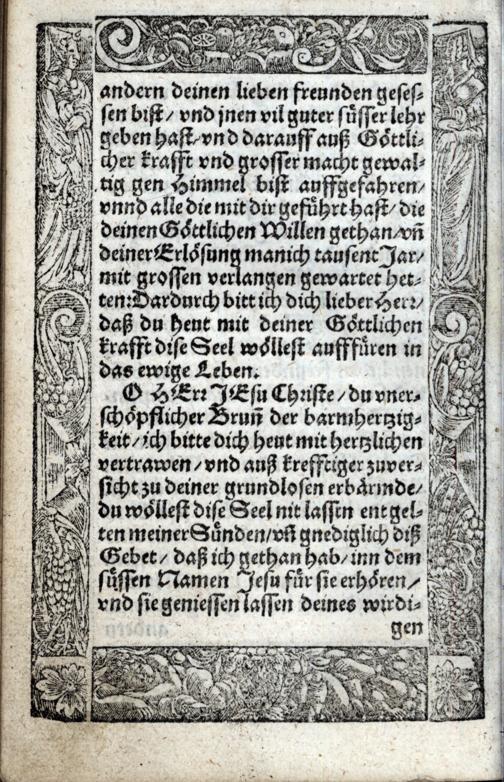 andern deinen lieben freunden geses⸗
sen bist/ vnd jnen vil guter süsser lehr
geben hast/ vnd darauff auß Göttli⸗
cher krafft vnd grosser macht gewal⸗
tig gen Himmel bist auffgefahren/
vnnd alle die mit dir geführt hast/ die
deinen Göttlichen Willen gethan/ vñ
deiner Erlösung manich tausent Jar/
mit grossen verlangen gewartet het⸗
ten: Dardurch bitt ich dich lieber Herr/
daß du heut mit deiner Göttlichen
krafft dise Seel wöllest aufffüren in
das ewige Leben.
O HErr JEsu Christe/ du vner⸗
schöpfflicher Bruñ der barmhertzig⸗
keit/ ich bitte dich heut mit hertzlichen
vertrawen/ vnd auß krefftiger zuver⸗
sicht zu deiner grundlosen erbärmde/
du wöllest dise Seel nit lassen entgel⸗
ten meiner Sünden/ vñ gnediglich diß
Gebet/ daß ich gethan hab/ inn dem
süssen Namen Jesu für sie erhören/
vnd sie geniessen lassen deines wirdi⸗
gen